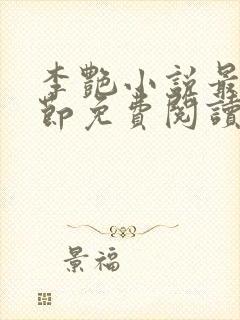 李艷小說最
節免費閱讀
景福